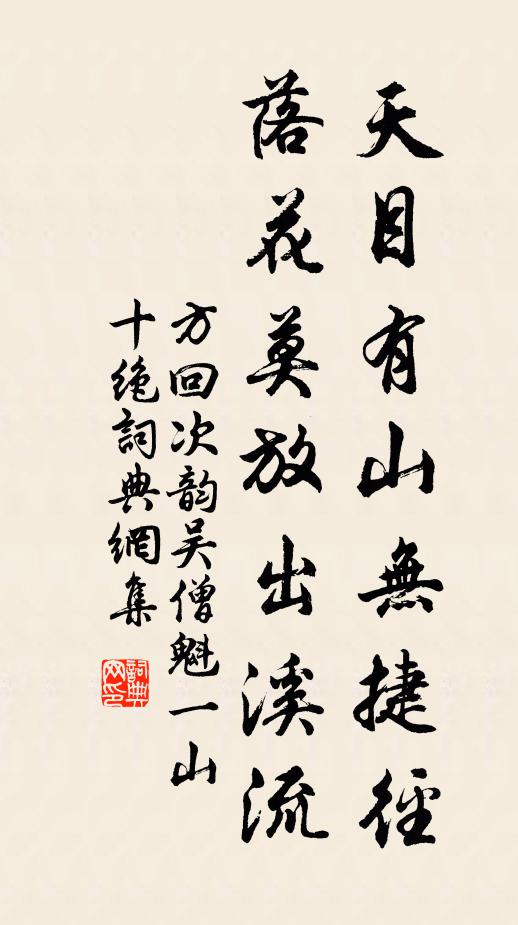 天目有山無捷徑
落花莫放出溪流
方回次韵吴僧魁一山
十絶詞典網集
詞典
网印